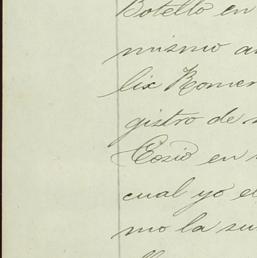 Botello en
mismo a
lix Romer
gistro de
Cosio en
cual yo e
mo la su